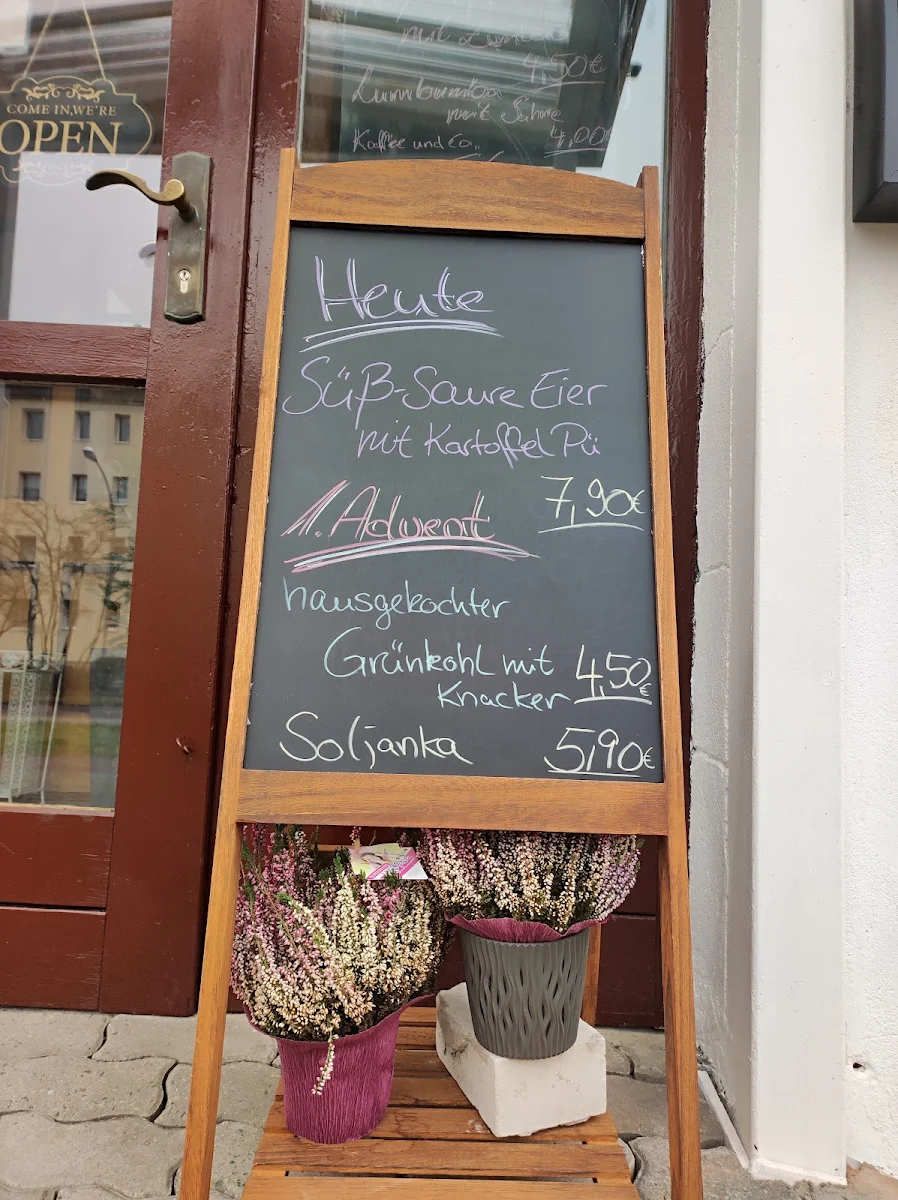 mit
4,50€
Lumumba
mit Sahne
4,00€
Kaffee und Co..
COME IN,WE'RE
OPEN
Heute
Süß-Saure Eier
mit Kartoffel Pü
7,90€
1. Advent
hausgekochter
Grünkohl mit 4,50€
Knacker
Soljanka 5,90€